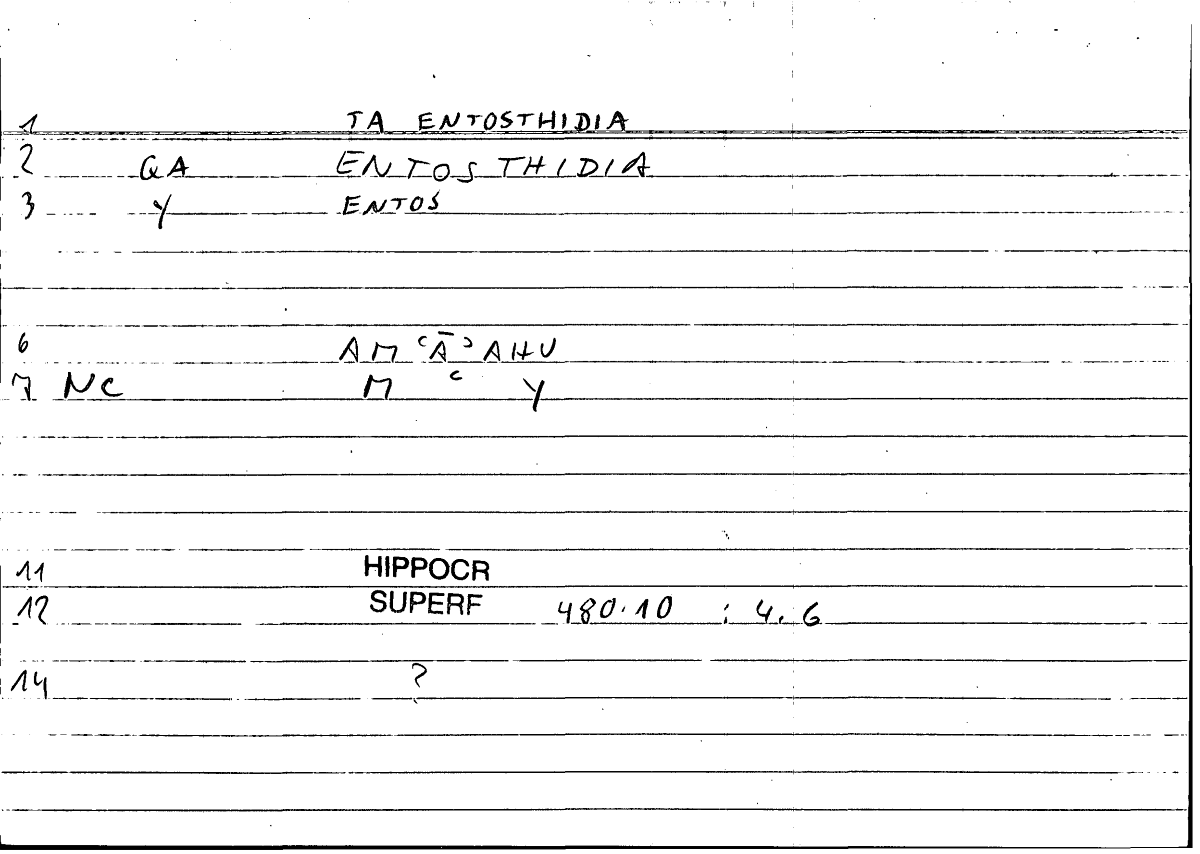 1 TA ENTOSTHIDIA
2 QA ENTOSTHIDIA
3 Y ENTOS
6 AM ʿĀʾAHU
7 NC M ʿ Y
11 HIPPOCR
12 SUPERF 480.10 : 4.6
14 ?